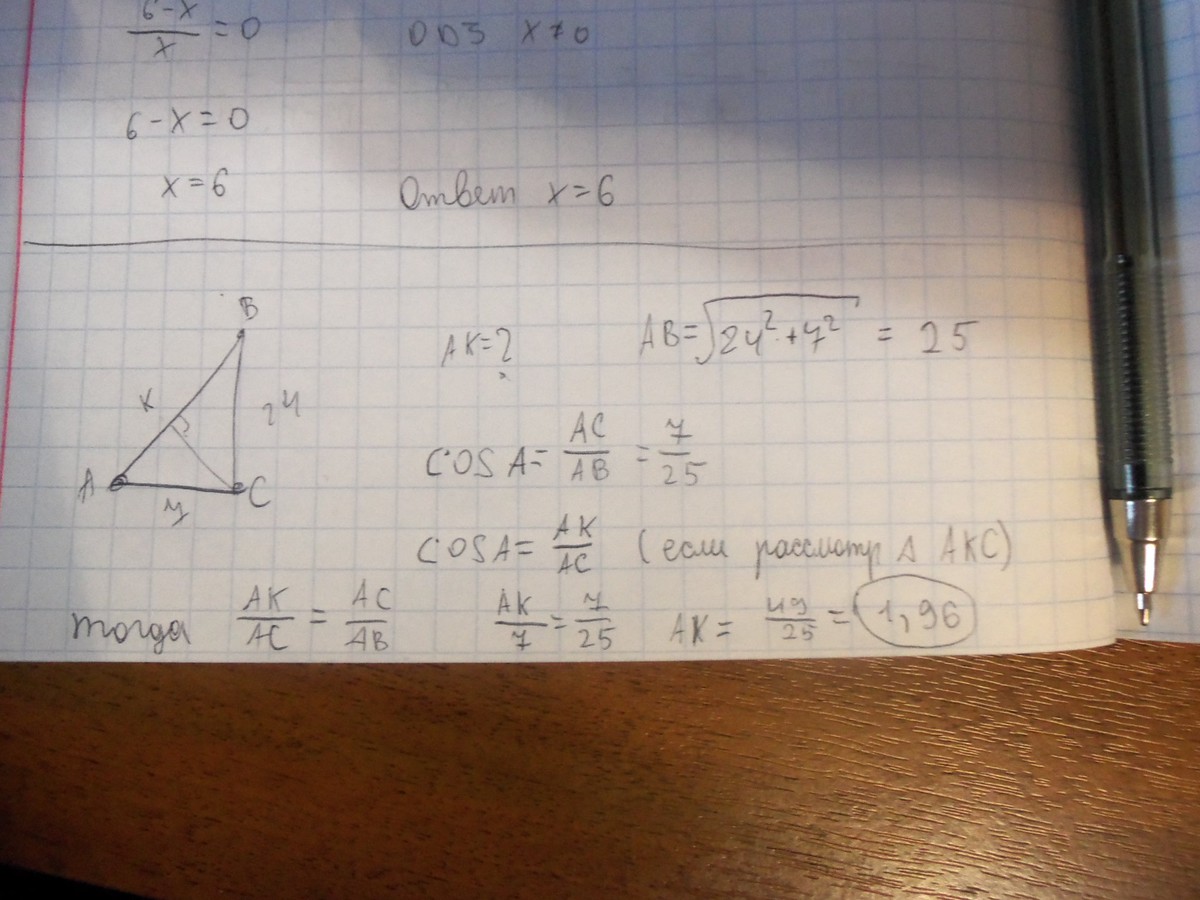 6-x/x = 0 ОДЗ x≠0
6-x=0
x=6 Ответ x=6
B
K
24
A
7
C
AK=? AB=√24²+7² = 25
COSA= AC/AB = 7/25
COSA= AK/AC (если рассмотр Δ AKC)
тогда AK/AC = AC/AB AK/7 = 7/25 AK= 49/25 = 1,96